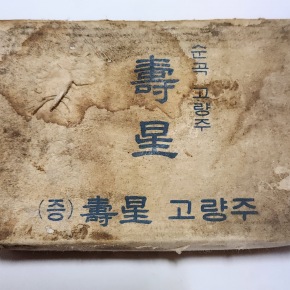 순곡 고량주
壽星
(증) 壽星 고량주